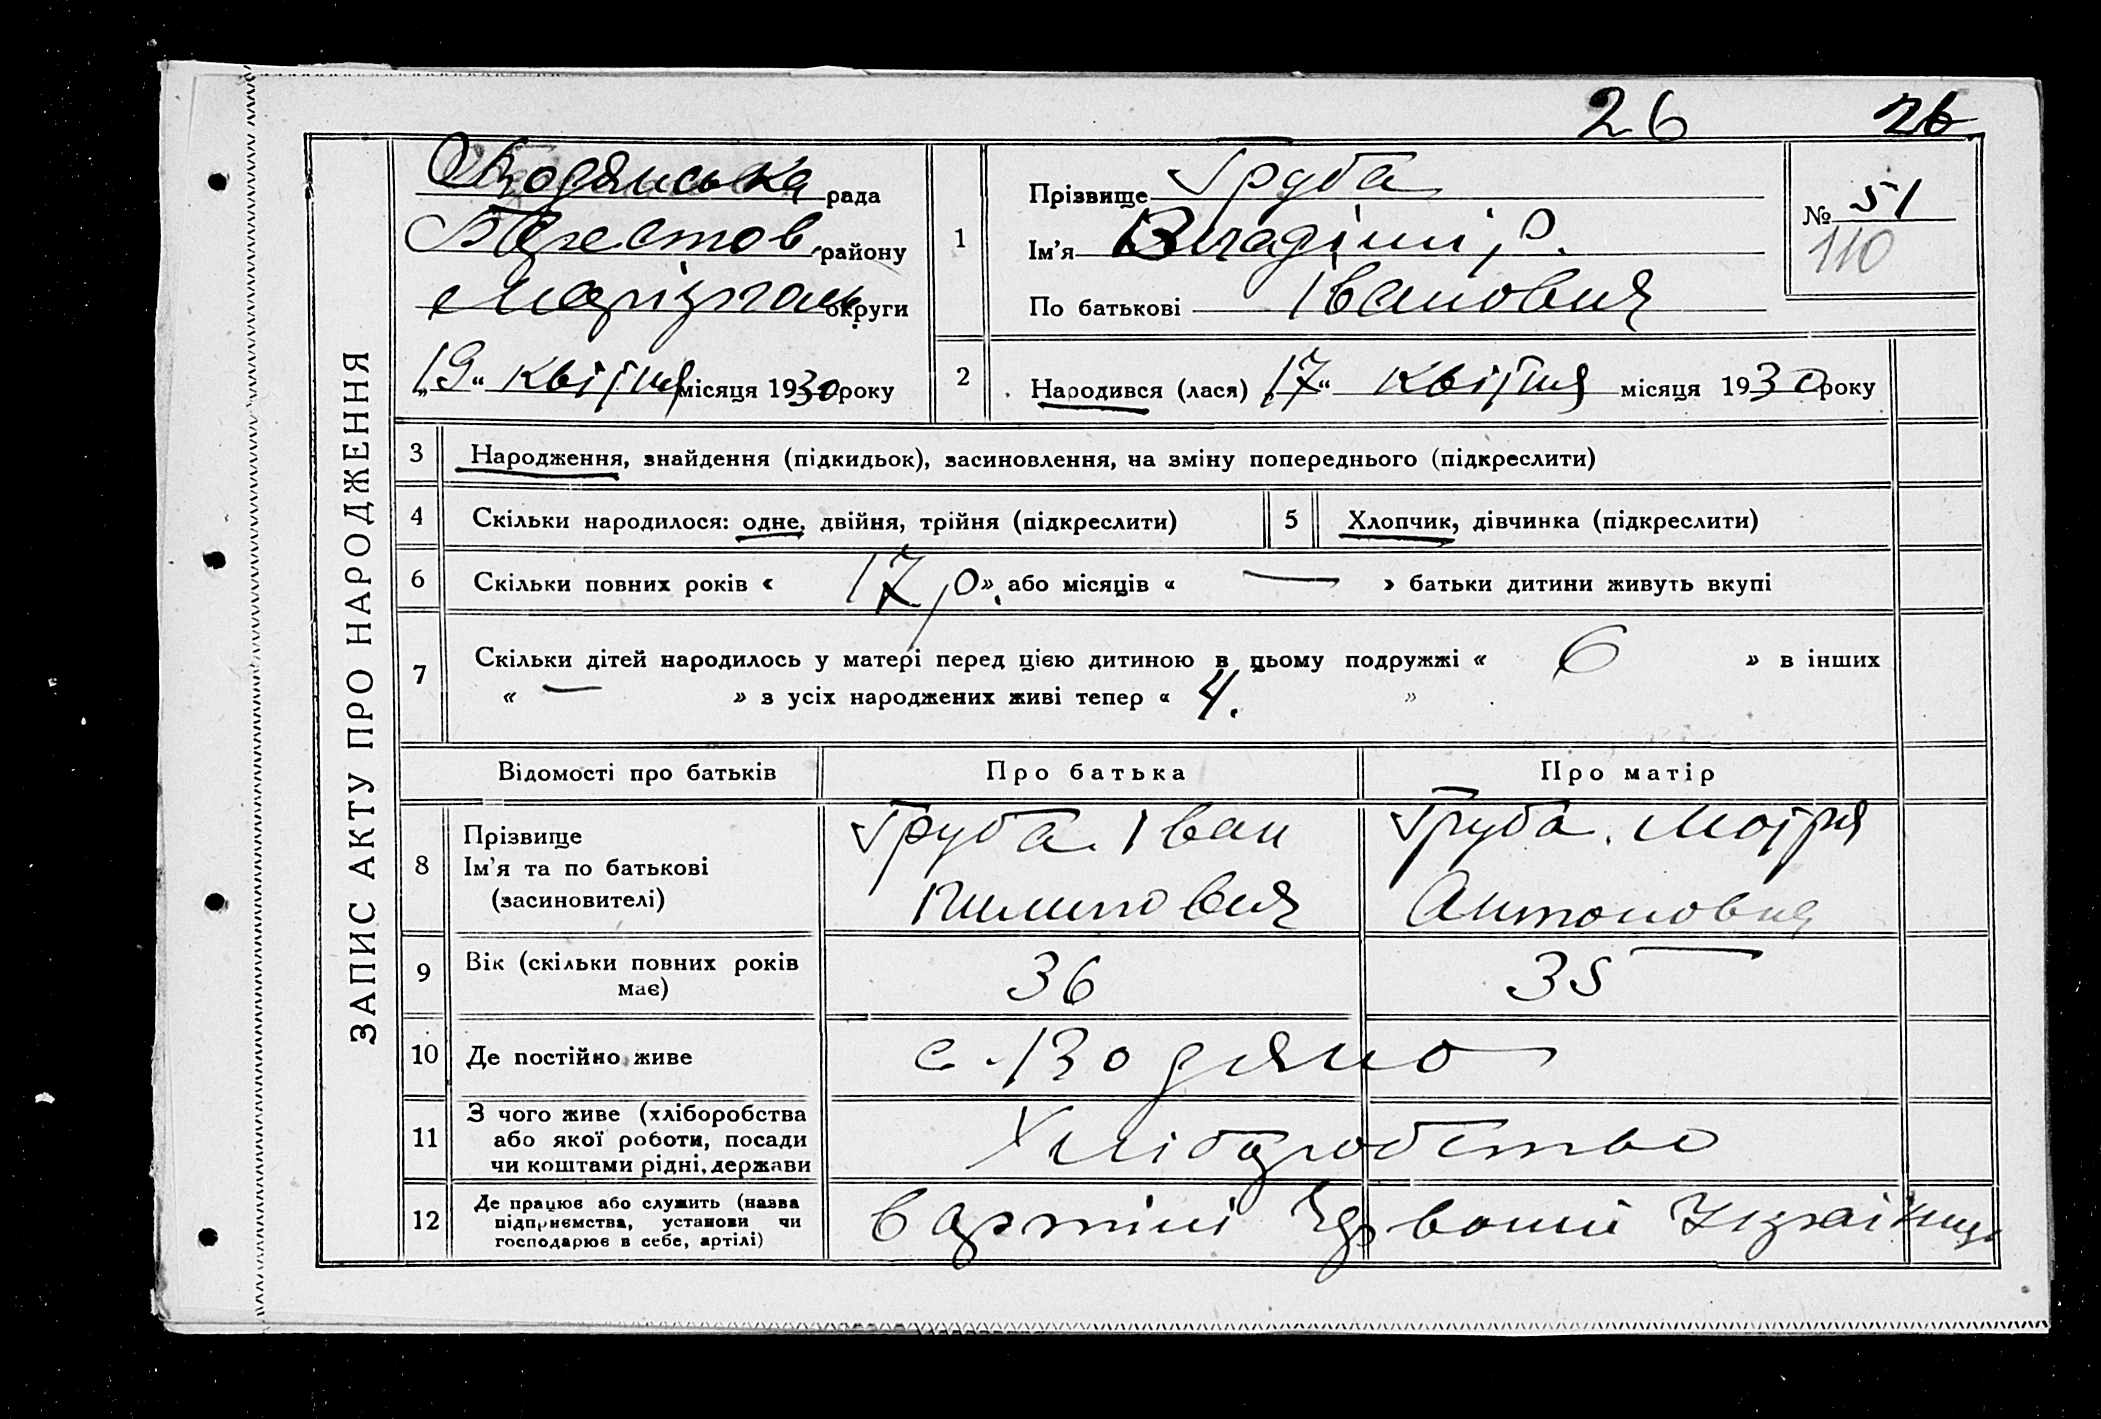 26 26
ЗАПИС АКТУ ПРО НАРОДЖЕННЯ
Водянська рада
району
округи
„19“ квітня місяця 1930 року
1
Прізвище Груба
Ім'я Владімір.
По батькові Іванович
№ 51
110
2
Народився (лася) „17“ квітня місяця 1930 року
3 Народження, знайдення (підкидьок), засиновлення, на зміну попереднього (підкреслити)
4 Скільки народилося: одне, двійня, трійня (підкреслити) 5 Хлопчик, дівчинка (підкреслити)
6 Скільки повних років « 17 р », або місяців « — » батьки дитини живуть вкупі
7 Скільки дітей народилось у матері перед цією дитиною в цьому подружжі « 6 » в інших
« — » з усіх народжених живі тепер « 4. »
Відомості про батьків Про батька Про матір
8 Прізвище
Ім'я та по батькові
(засновителі)
Груба Іван
Пилипович
Груба Мотря
Антоновна
9 Вік (скільки повних років
має)
36 35
10 Де постійно живе с. Водяно
11 З чого живе (хліборобства
або якої роботи, посади
чи коштами рідні, держави
Хліборобство
12 Де працює або служить (назва
підприємства, установи чи
господарює в себе, артілі)
в артілі Червоний